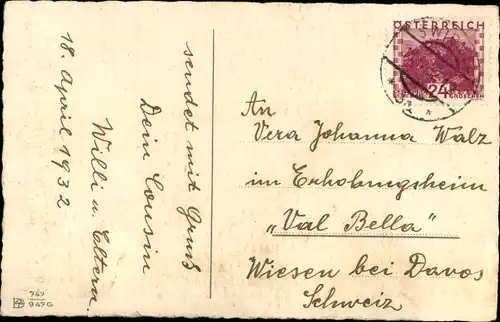 18. April 1932
Willi u. Eltern.
Dein Cousin
sendet mit Gruß
ÖSTERREICH
24
GROSCHEN
WIEN
An
Vera Johanna Walz
im Erholungsheim
„Val Bella"
Wiesen bei Davos
Schweiz
747
947G